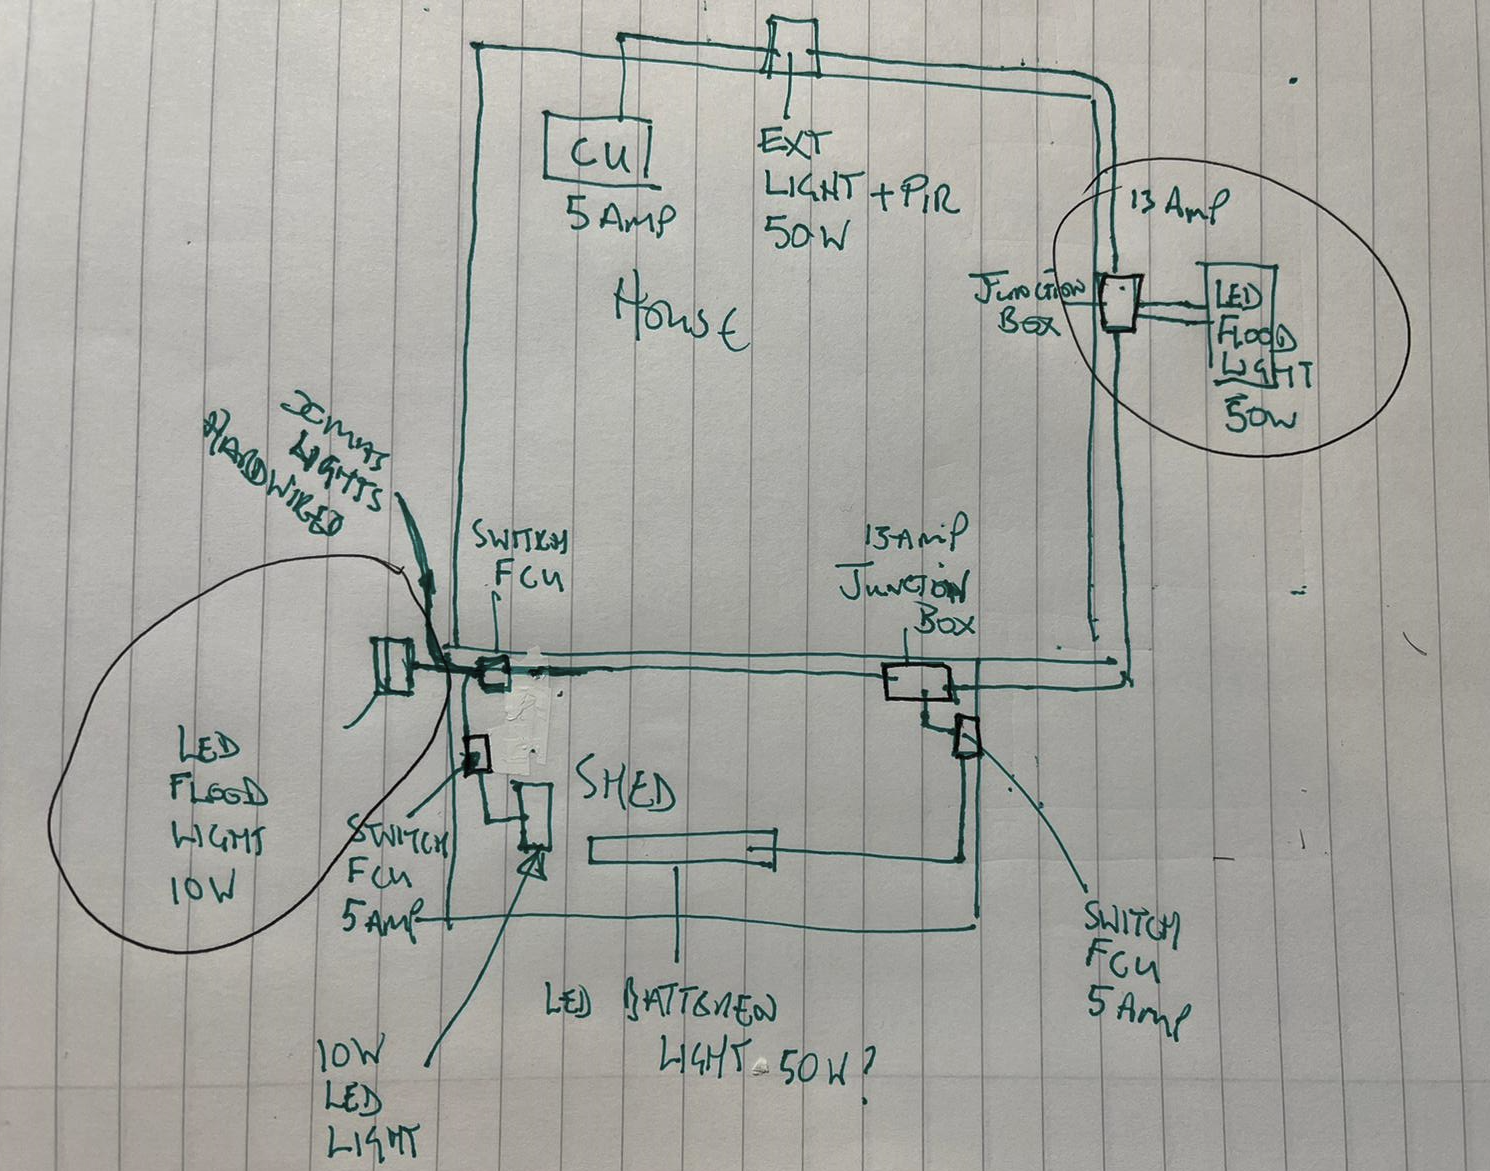 CU
5 AMP
EXT
LIGHT + PIR
50W
13 AMP
HOUSE
JUNCTION
BOX
LED
FLOOD
LIGHT
50W
XMAS
LIGHTS
HARDWIRED
SWITCH
FCU
13 AMP
JUNCTION
BOX
LED
FLOOD
LIGHT
10W
SHED
SWITCH
FCU
5 AMP
SWITCH
FCU
5 AMP
LED BATTEREN
LIGHT 50W?
10W
LED
LIGHT